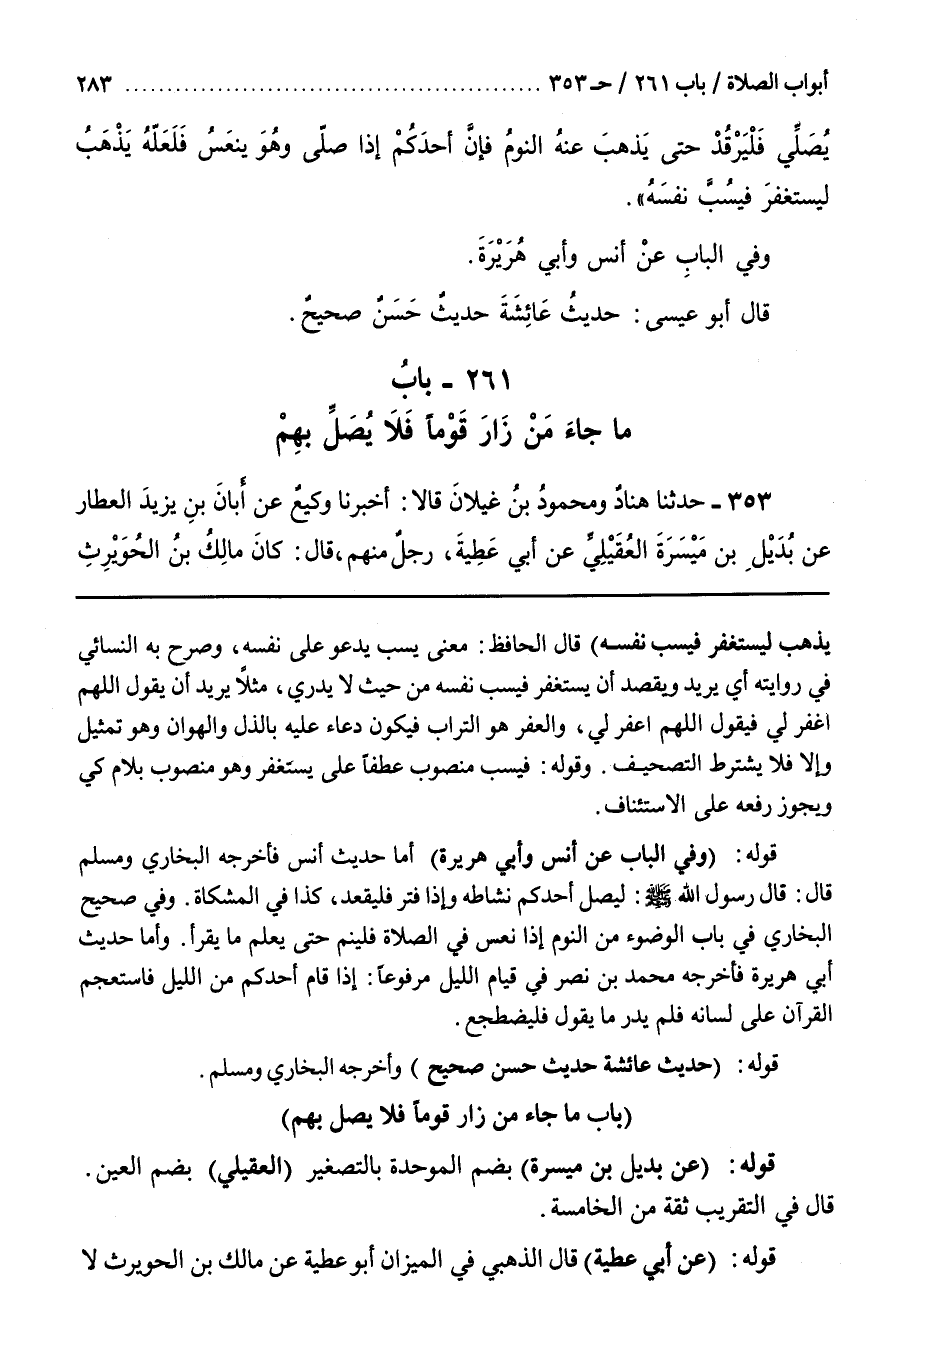 أبواب الصلاة / باب ٢٦١ / حـ ٣٥٣ .................................................. ٢٨٣
يُصَلِّي فَلْيَرْقُدْ حتى يَذهبَ عنهُ النومُ فإنَّ أحدَكُمْ إذا صلّى وهُوَ ينعَسُ فَلَعَلّهُ يَذْهَبُ
ليستغفرَ فيسُبَّ نفسَهُ» .
وفي البابِ عنْ أنس وأبي هُرَيْرَةَ .
قال أبو عيسى : حديثُ عَائِشَةَ حديثٌ حَسَنٌ صحيحٌ .
٢٦١ - بابُ
ما جاءَ مَنْ زَارَ قَوْماً فَلَا يُصَلِّ بهِمْ
٣٥٣ - حدثنا هنادٌ ومحمودُ بنُ غيلانَ قالا : أخبرنا وكيعٌ عن أَبانَ بنِ يزيدَ العطار
عن بُدَيْلِ بن مَيْسَرَةَ العُقَيْلِيِّ عن أبي عَطِيةَ، رجلٌ منهم، قال : كانَ مالِكُ بنُ الحُوَيْرِثِ
يذهب ليستغفر فيسب نفسه) قال الحافظ : معنى يسب يدعو على نفسه، وصرح به النسائي
في روايته أي يريد ويقصد أن يستغفر فيسب نفسه من حيث لا يدري، مثلاً يريد أن يقول اللهم
اغفر لي فيقول اللهم اعفر لي، والعفر هو التراب فيكون دعاء عليه بالذل والهوان وهو تمثيل
وإلا فلا يشترط التصحيف . وقوله : فيسب منصوب عطفاً على يستغفر وهو منصوب بلام كي
ويجوز رفعه على الاستئناف .
قوله : (وفي الباب عن أنس وأبي هريرة) أما حديث أنس فأخرجه البخاري ومسلم
قال : قال رسول الله ﷺ : ليصل أحدكم نشاطه وإذا فتر فليقعد، كذا في المشكاة . وفي صحيح
البخاري في باب الوضوء من النوم إذا نعس في الصلاة فلينم حتى يعلم ما يقرأ . وأما حديث
أبي هريرة فأخرجه محمد بن نصر في قيام الليل مرفوعاً : إذا قام أحدكم من الليل فاستعجم
القرآن على لسانه فلم يدر ما يقول فليضطجع .
قوله : (حديث عائشة حديث حسن صحيح ) وأخرجه البخاري ومسلم .
(باب ما جاء من زار قوماً فلا يصل بهم)
قوله : (عن بديل بن ميسرة) بضم الموحدة بالتصغير (العقيلي) بضم العين .
قال في التقريب ثقة من الخامسة .
قوله : (عن أبي عطية) قال الذهبي في الميزان أبو عطية عن مالك بن الحويرث لا